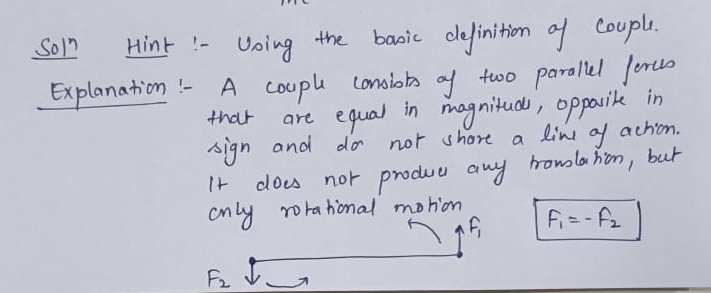 Soln Hint :- Using the basic definition of couple.
Explanation :- A couple consists of two parallel forces
that are equal in magnitude, opposite in
sign and do not share a line of action.
It does not produce any translation, but
only rotational motion
F₁ F₁ = - F₂
F₂